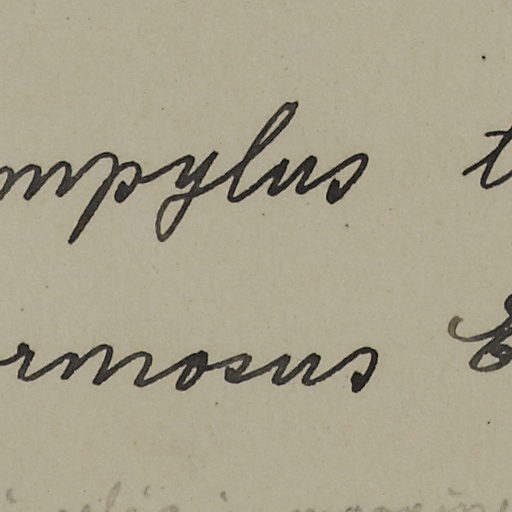 mpylus t
rmosus E